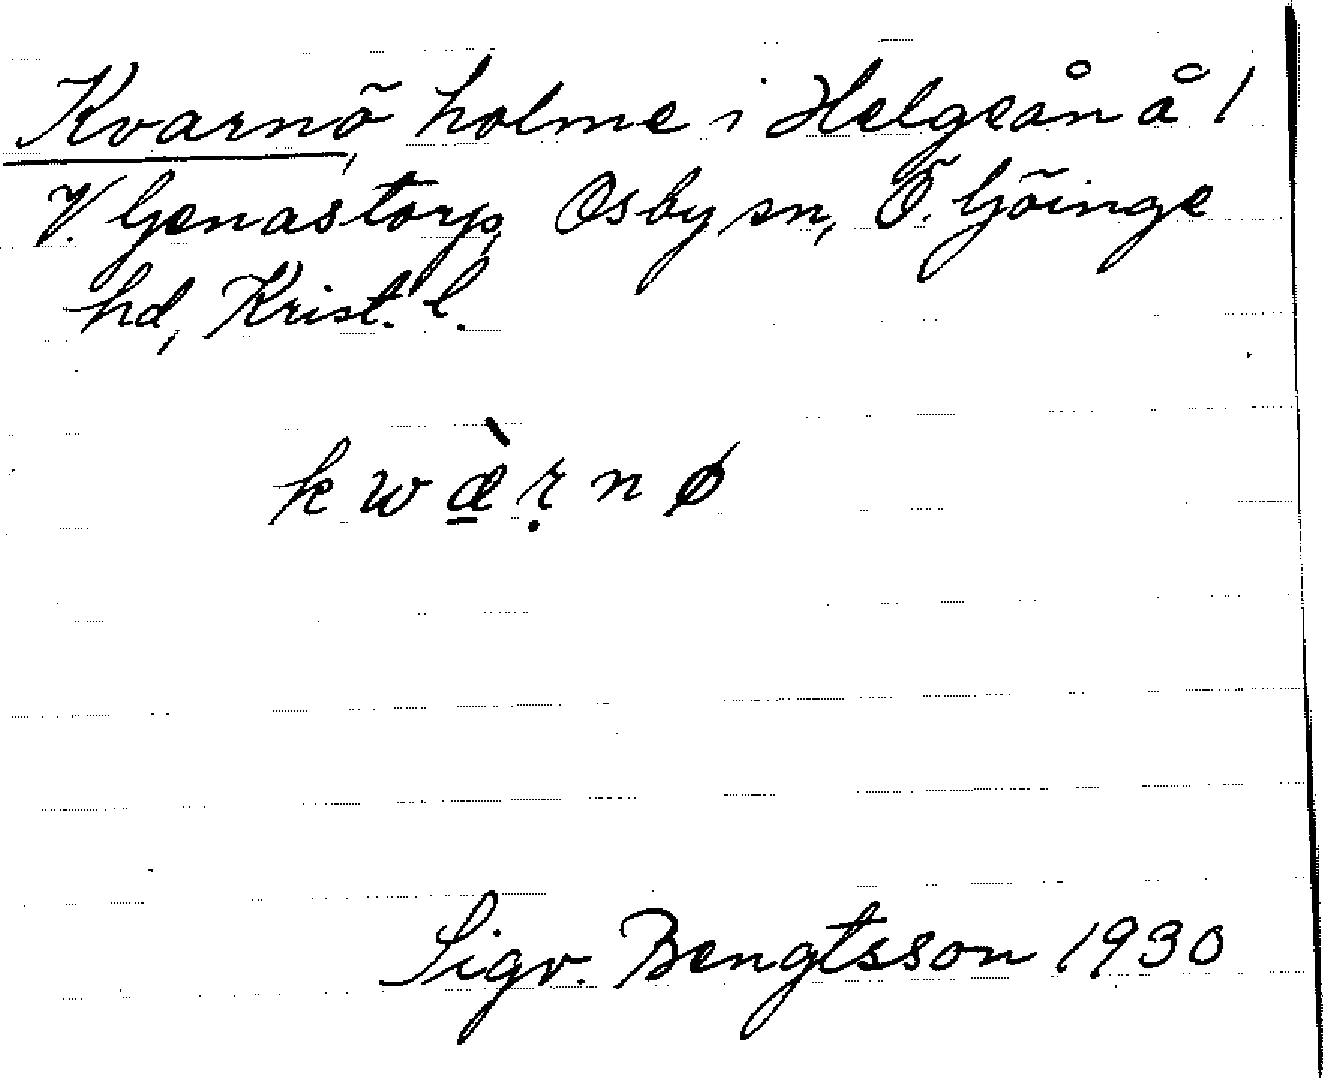 Kvarnö, holme i Helgeån å 1
V. Genastorp, Osby sn, Ö. Göinge
hd, Krist. l.
k w æ̠̀ ṛ n ø
Sigv. Bengtsson 1930